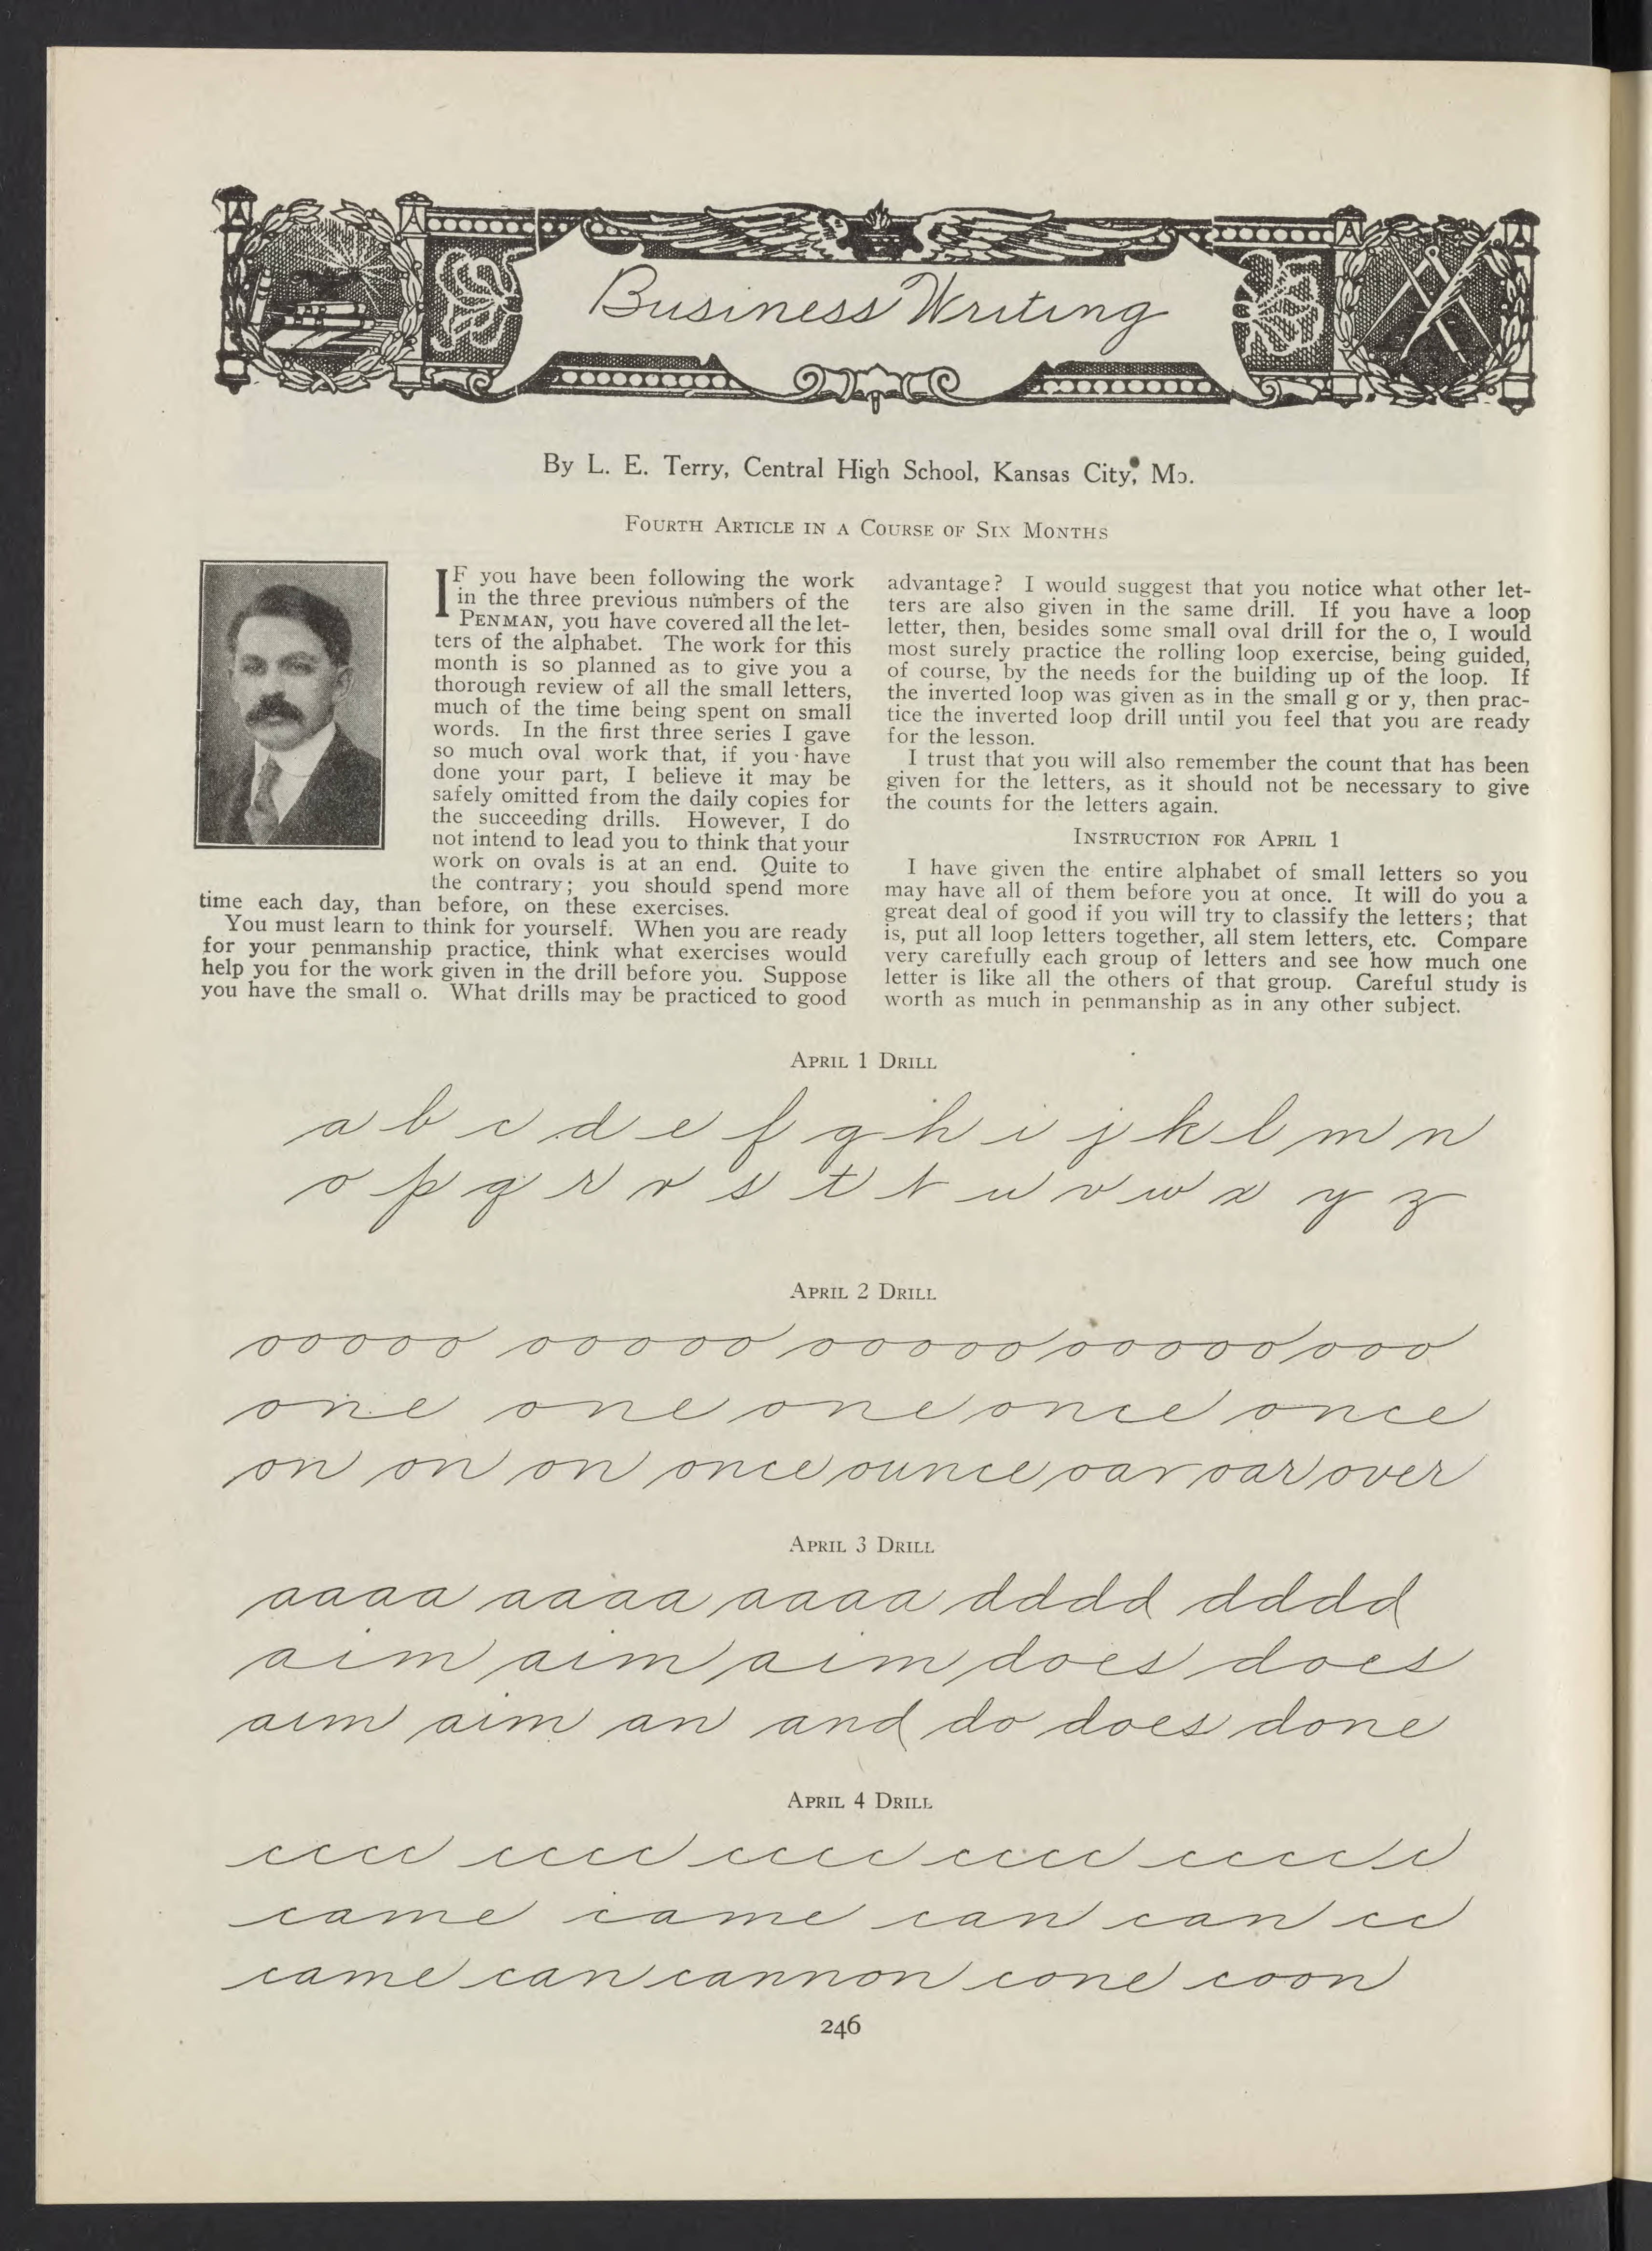 Business Writing
By L. E. Terry, Central High School, Kansas City, Mo.
Fourth Article in a Course of Six Months
IF you have been following the work
in the three previous numbers of the
Penman, you have covered all the let-
ters of the alphabet. The work for this
month is so planned as to give you a
thorough review of all the small letters,
much of the time being spent on small
words. In the first three series I gave
so much oval work that, if you have
done your part, I believe it may be
safely omitted from the daily copies for
the succeeding drills. However, I do
not intend to lead you to think that your
work on ovals is at an end. Quite to
the contrary; you should spend more
time each day, than before, on these exercises.
You must learn to think for yourself. When you are ready
for your penmanship practice, think what exercises would
help you for the work given in the drill before you. Suppose
you have the small o. What drills may be practiced to good
advantage? I would suggest that you notice what other let-
ters are also given in the same drill. If you have a loop
letter, then, besides some small oval drill for the o, I would
most surely practice the rolling loop exercise, being guided,
of course, by the needs for the building up of the loop. If
the inverted loop was given as in the small g or y, then prac-
tice the inverted loop drill until you feel that you are ready
for the lesson.
I trust that you will also remember the count that has been
given for the letters, as it should not be necessary to give
the counts for the letters again.
Instruction for April 1
I have given the entire alphabet of small letters so you
may have all of them before you at once. It will do you a
great deal of good if you will try to classify the letters; that
is, put all loop letters together, all stem letters, etc. Compare
very carefully each group of letters and see how much one
letter is like all the others of that group. Careful study is
worth as much in penmanship as in any other subject.
April 1 Drill
a b c d e f g h i j k l m n
o p q r r s t t u v w x y z
April 2 Drill
ooooo ooooo ooooo ooooo ooo
one one one once once
on on on once ounce oar oar over
April 3 Drill
aaaa aaaa aaaa dddd dddd
aim aim aim does does
aim aim an and do does done
April 4 Drill
cccc cccc cccc cccc ccccc c
came came can can cc
came can cannon cone coon
246